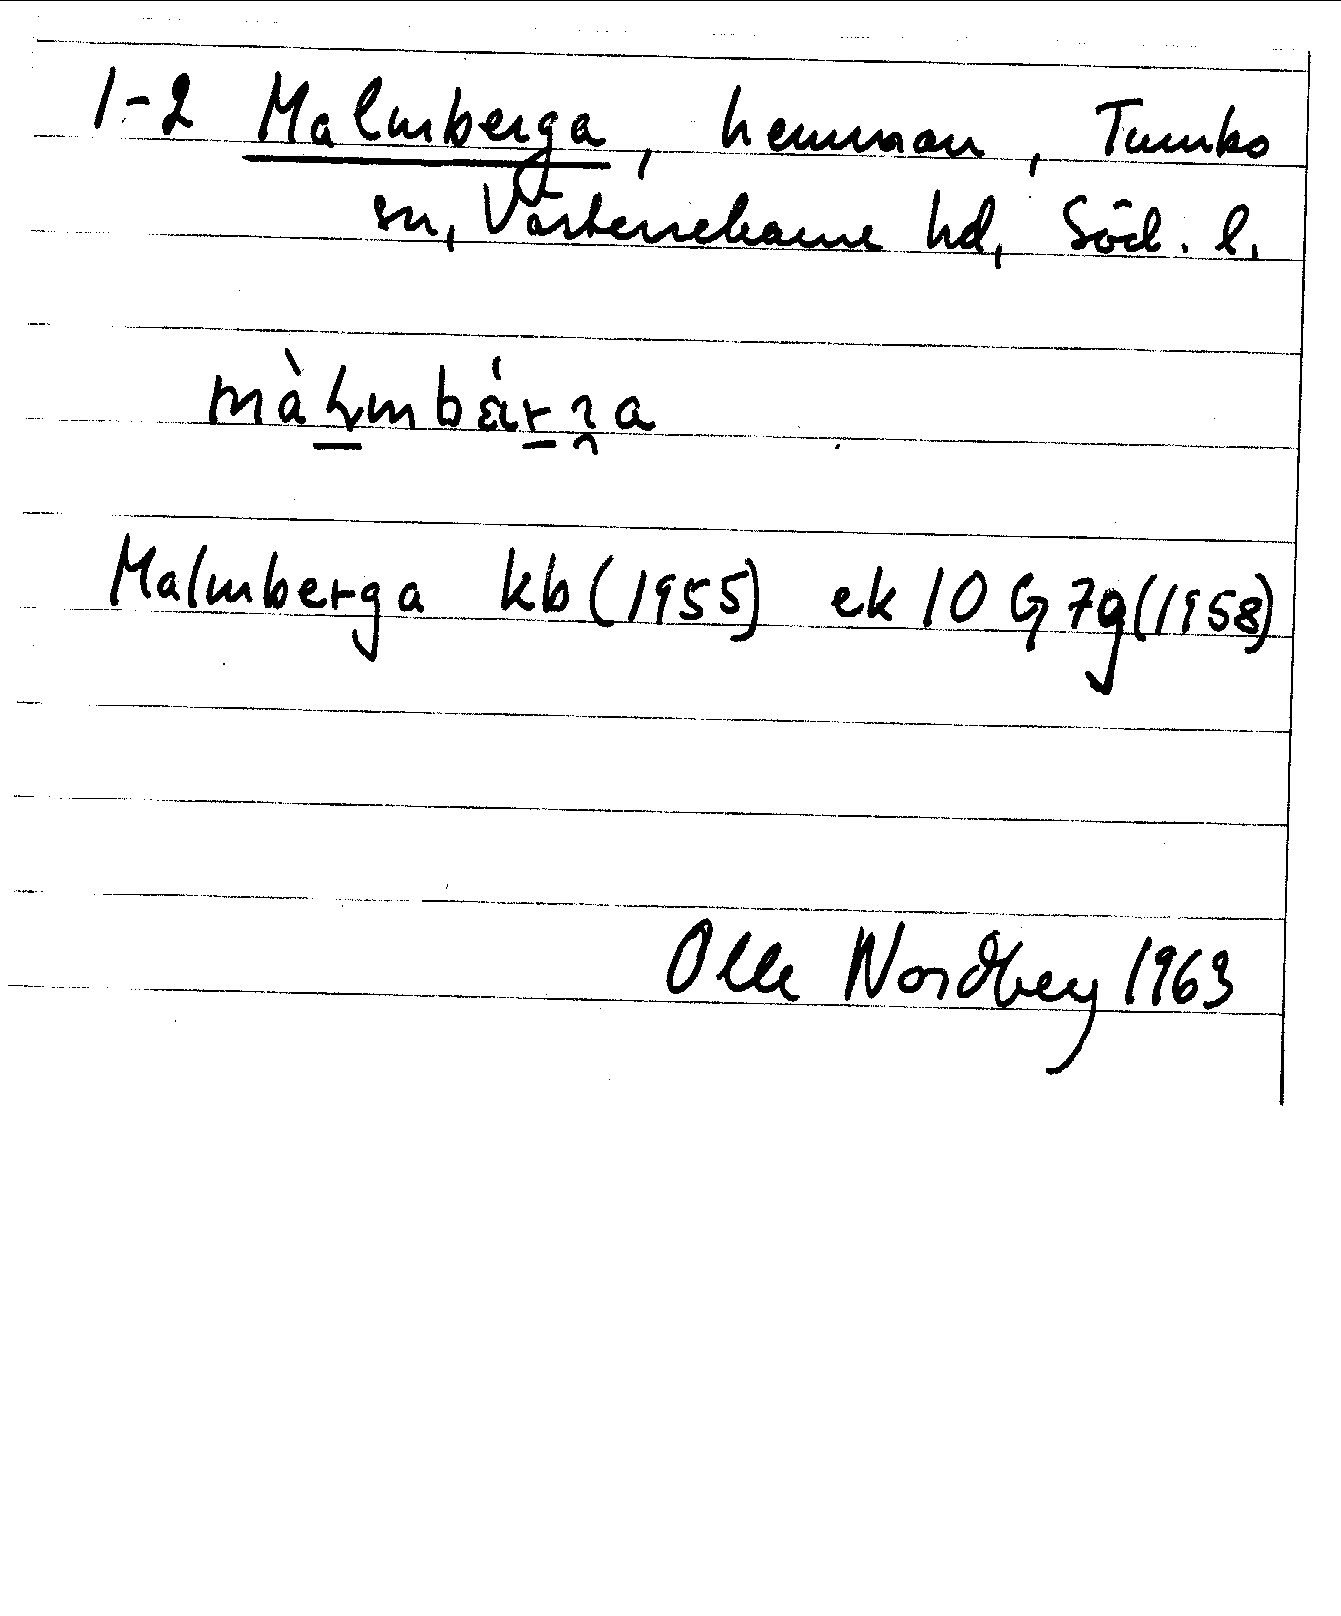 1-2 Malmberga, hemman, Tumbo
sn, Västerrekarne hd, Söd. l.
Malmberga kb (1955) ek 10 G 7g (1958)
Olle Nordberg 1963